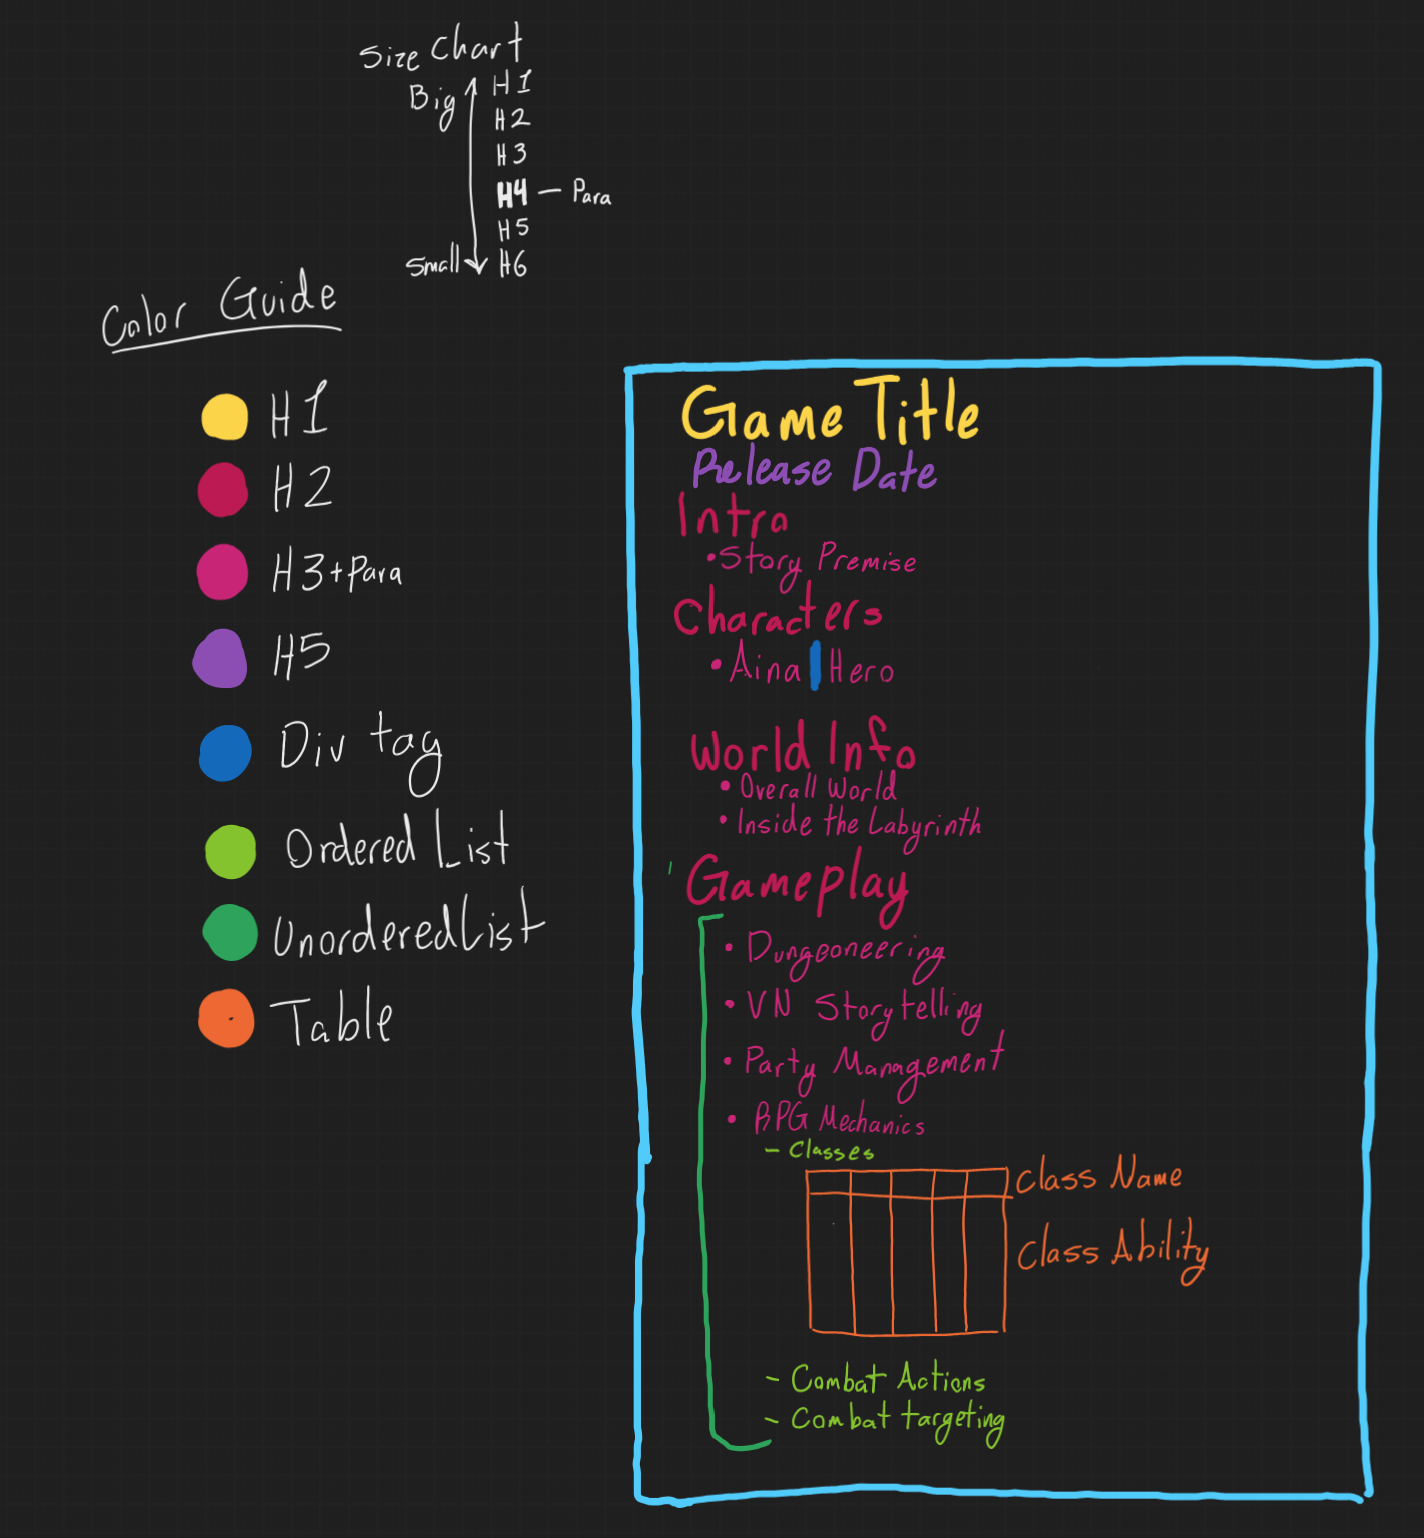 Size Chart
Big H1
H2
H3
H4 — Para
H5
Small H6
Color Guide
H1
H2
H3+Para
H5
Div tag
Ordered List
Unordered List
Table
Game Title
Release Date
Intro
• Story Premise
Characters
• Aina | Hero
World Info
• Overall World
• Inside the Labyrinth
Gameplay
• Dungeoneering
• VN Storytelling
• Party Management
• RPG Mechanics
- Classes
Class Name
Class Ability
- Combat Actions
- Combat targeting